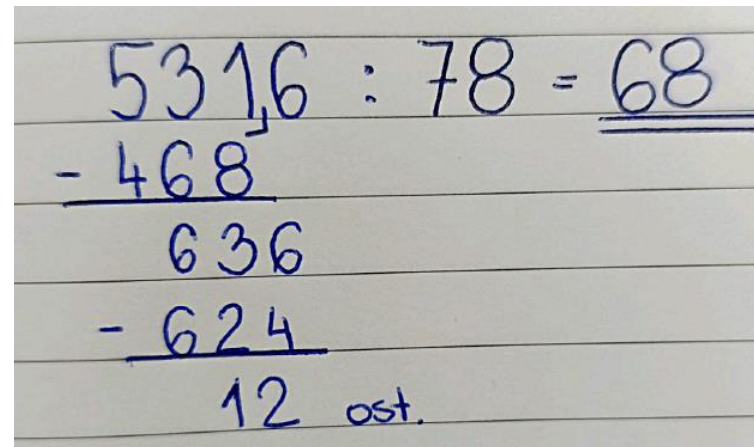 531,6 : 78 = 68
- 468
636
- 624
12 ost.